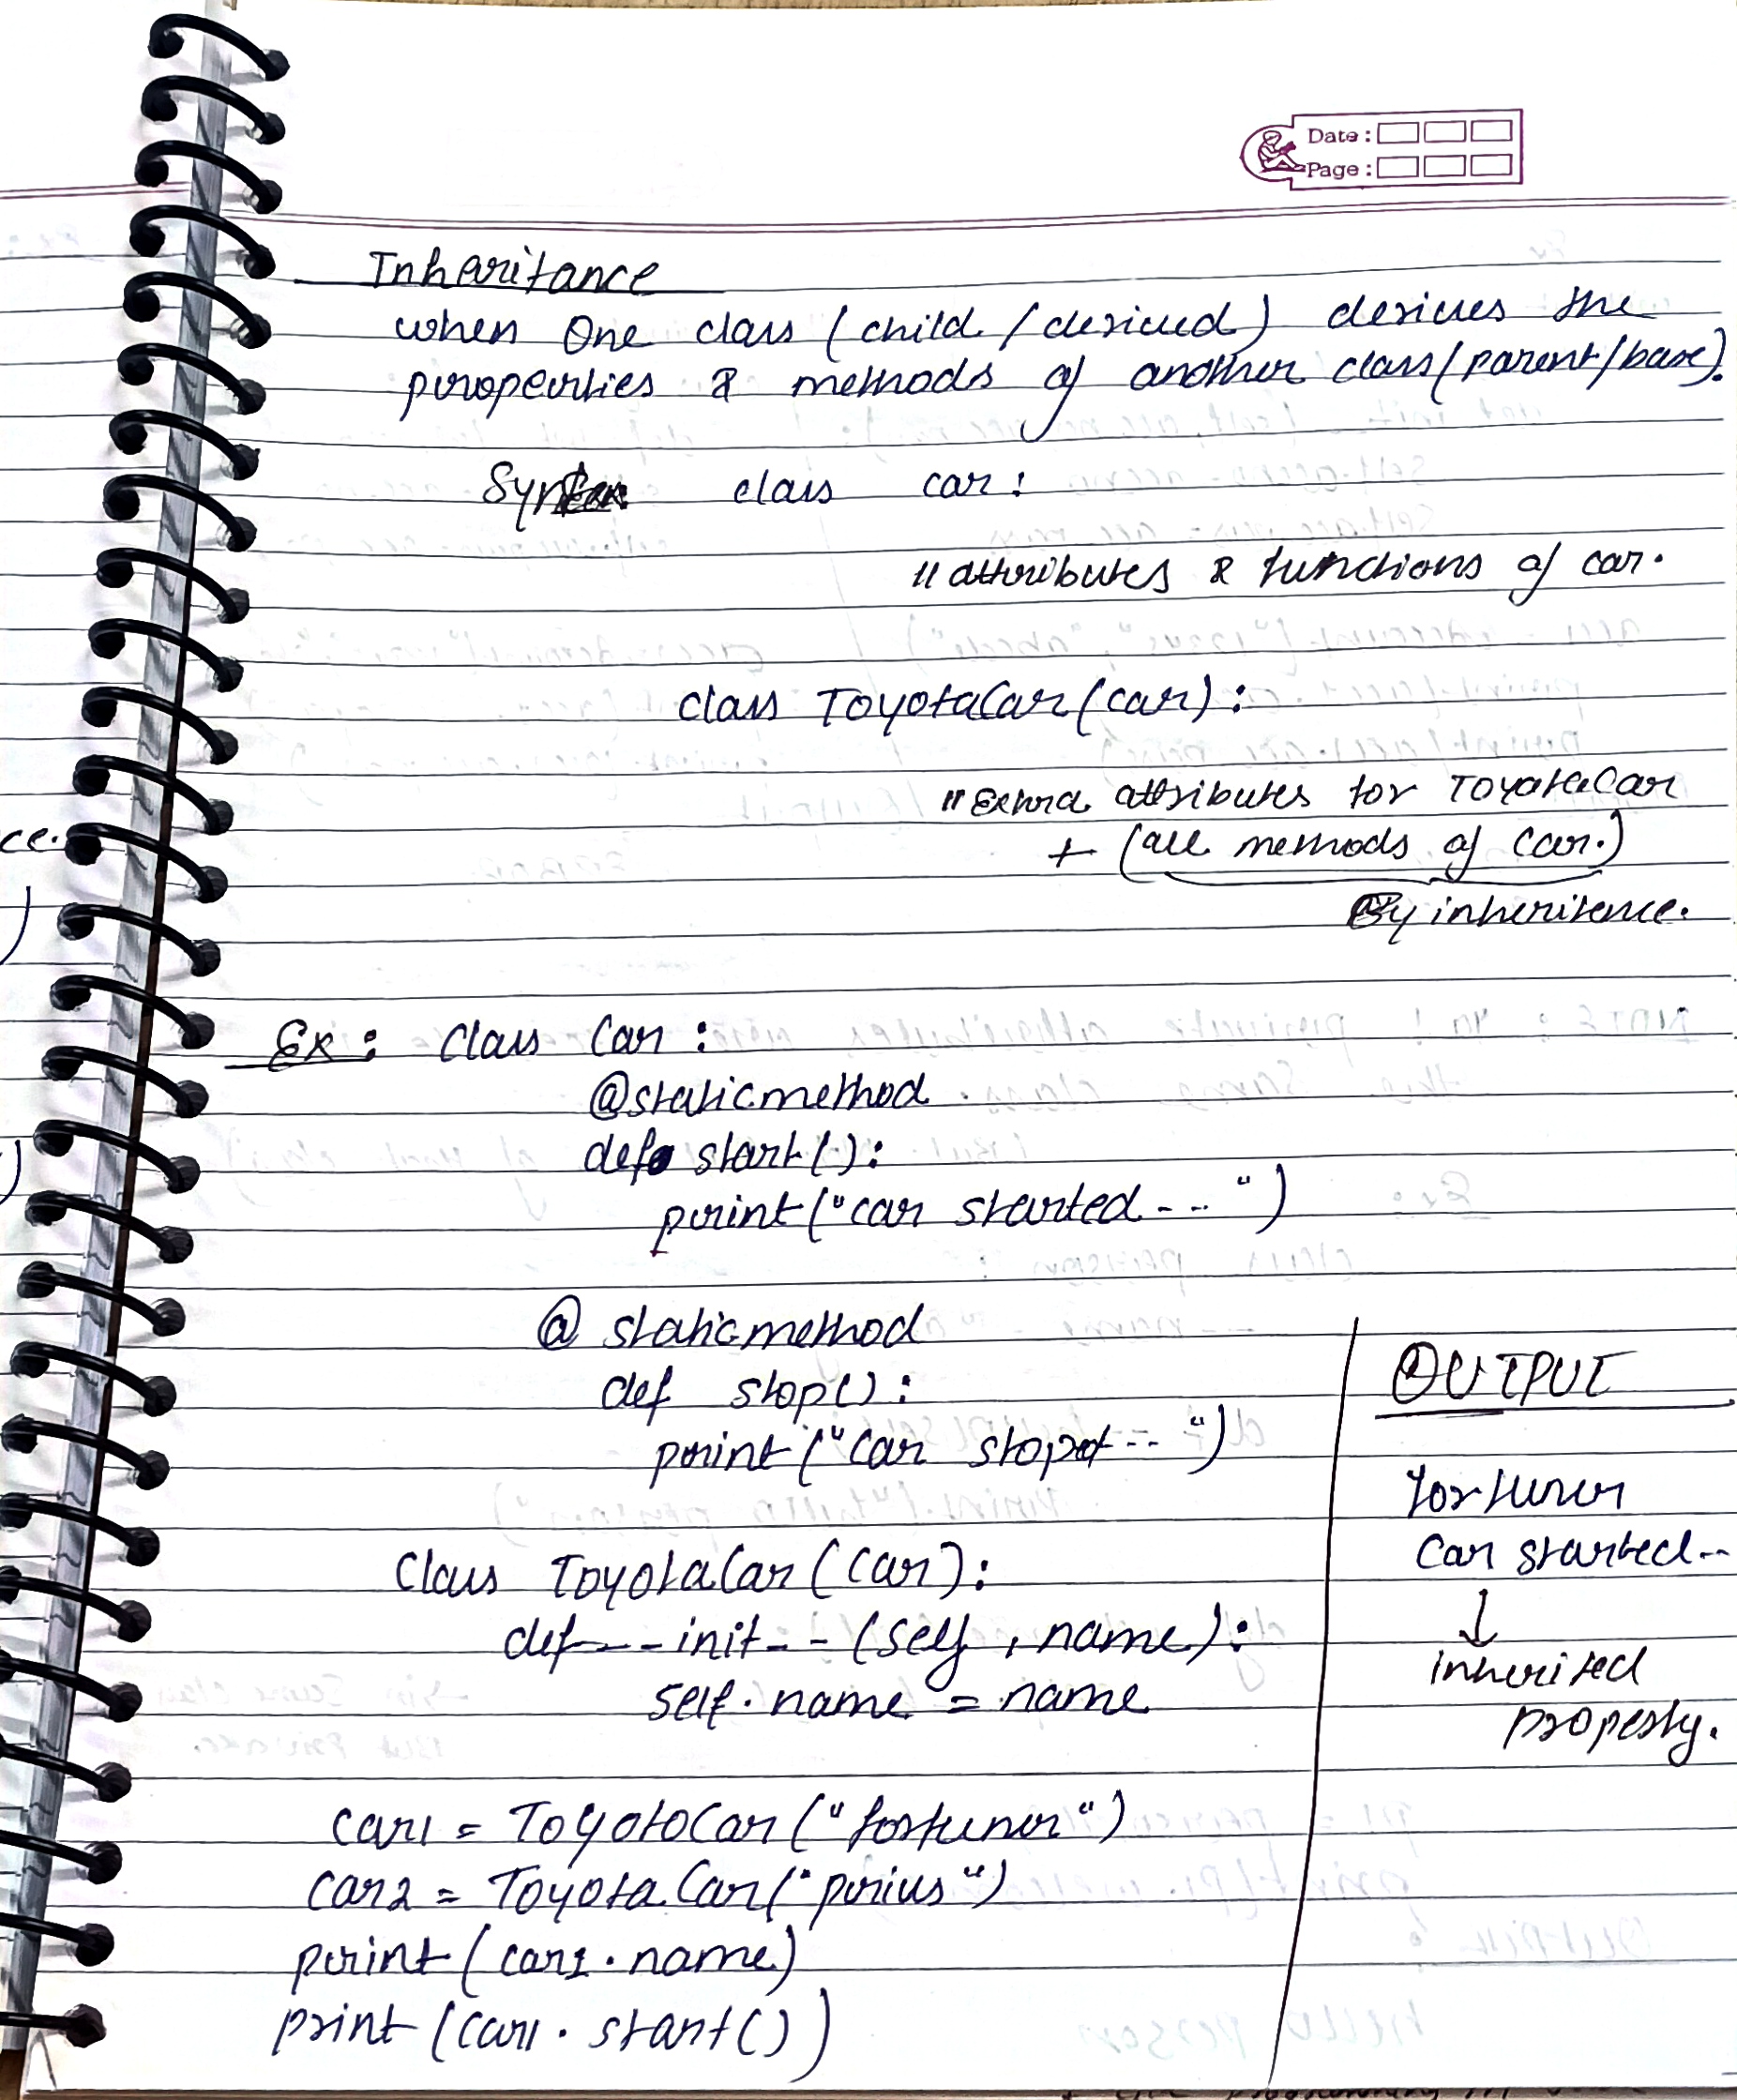 Date :
Page :
Inheritance
when One class (child/derived) derives the
properties & methods of another class(parent/base).
Syntax class car:
"attributes & functions of car.
class ToyotaCar(car):
"Extra attributes for ToyataCar
+ (all methods of Car.)
By inheritence.
Ex: Class Car :
@staticmethod
def start():
print("car started--")
@ staticmethod
def stop():
print("Car stoped--")
Class ToyotaCar(Car):
def--init--(self, name):
self.name = name
car1 = ToyotoCar("fortuner")
Car2 = ToyotaCar("prius")
print(car1.name)
print(car1.start())
OUTPUT
fortuner
Car started--
↓
inherited
property.